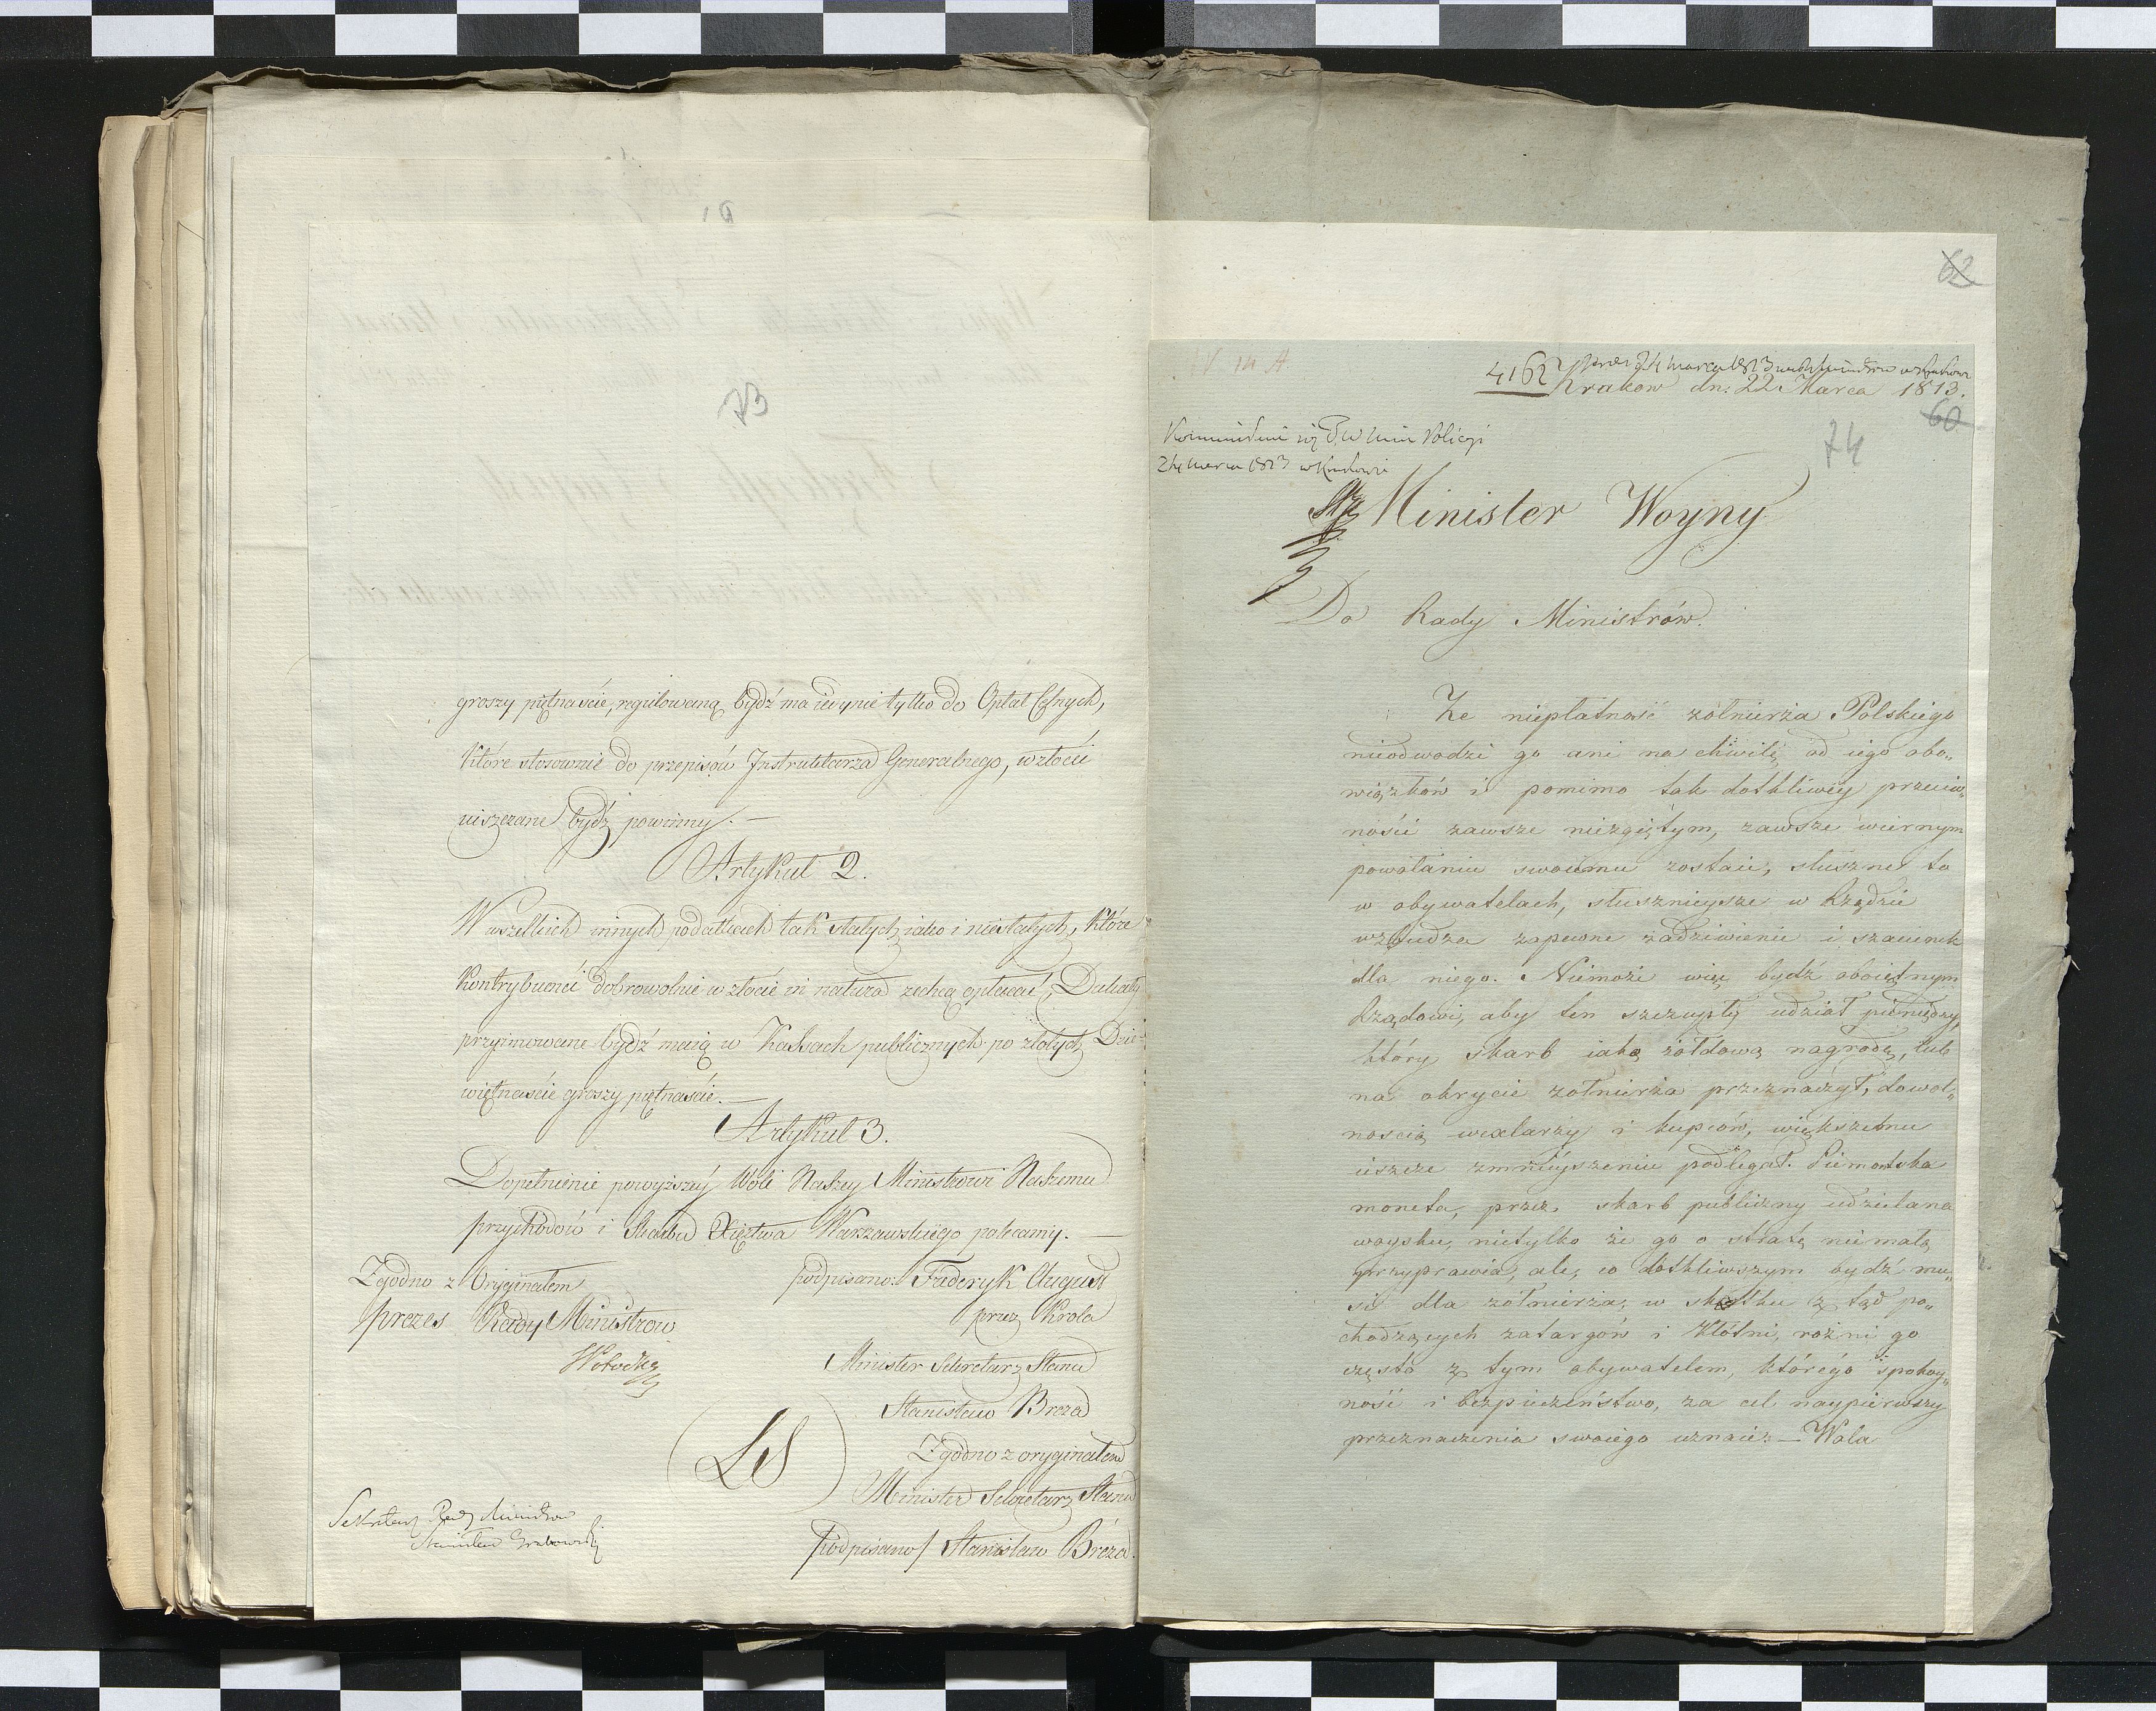 73
groszy piętnaście, regulowaną bydź ma iedynie tylko do Opłat Celnych,
które stosownie do przepisów Instruktarza Generalnego, w złocie
uiszczane bydź powinny. —
Artykuł 2.
W wszelkich innych podatkach tak stałych iako i niestałych, które
kontrybuenci dobrowolnie w złocie in natura zechcą opłacać, Dukaty
przyimowane bydź maią w Kassach publicznych po złotych Dzie-
więtnaście groszy piętnaście. —
Artykuł 3.
Dopełnienie powyższey Woli Naszey Ministrowi Naszemu
przychodów i Skarbu Xięztwa Warszawskiego polecamy. —
Zgodno z Oryginałem
prezes Rady Ministrow
podpisano: Frideryk August
przez Krola
Minister Sekretarz Stanu
Stanisław Breza
LS
Zgodno z oryginałem
Minister Sekretarz Stanu
/podpisano/ Stanisław Breza.
Sekretarz Rady Ministrow
Stanisław Grabowski
62
4162
24 marca 1813
Krakow dn: 22 Marca 1813.
60
74
Policyi
24 marca 1813 w Krakowie
Minister Woyny
Do Rady Ministrów.
Że niepłatność żołnierza Polskiego
nieodwodzi go ani na chwilę od iego obo„
wiązków i pomimo tak dotkliwey przeciw„
ności zawsze niezgiętym, zawsze wiernym
powołaniu swoiemu zostaie, słuszne to
w obywatelach, słusznieysze w Rządzie
wzbudza zapewne zadziwienie i szacunek
dla niego. Niemoże więc bydź oboiętnym
Rządowi, aby ten szczupły udział pieniędzy,
który skarb iako żołdową nagrodę, lub
na okrycie żołnierza przeznaczył, dowol„
nością wexlarzy i kupców, większemu
ieszcze zmnieyszeniu podlegał. Piemontska
moneta, przez skarb publiczny udzielana
woysku, nietylko że go o stratę niemałą
przyprawia, ale, co dotkliwszym bydź mu„
si dla żołnierza, w skutku z tąd po„
chodzących zatargów i kłótni, rożni go
często z tym obywatelem, którego spokoy„
ność i bezpieczeństwo, za cel naypierwszy
przeznaczenia swoiego uznaie. — Wola